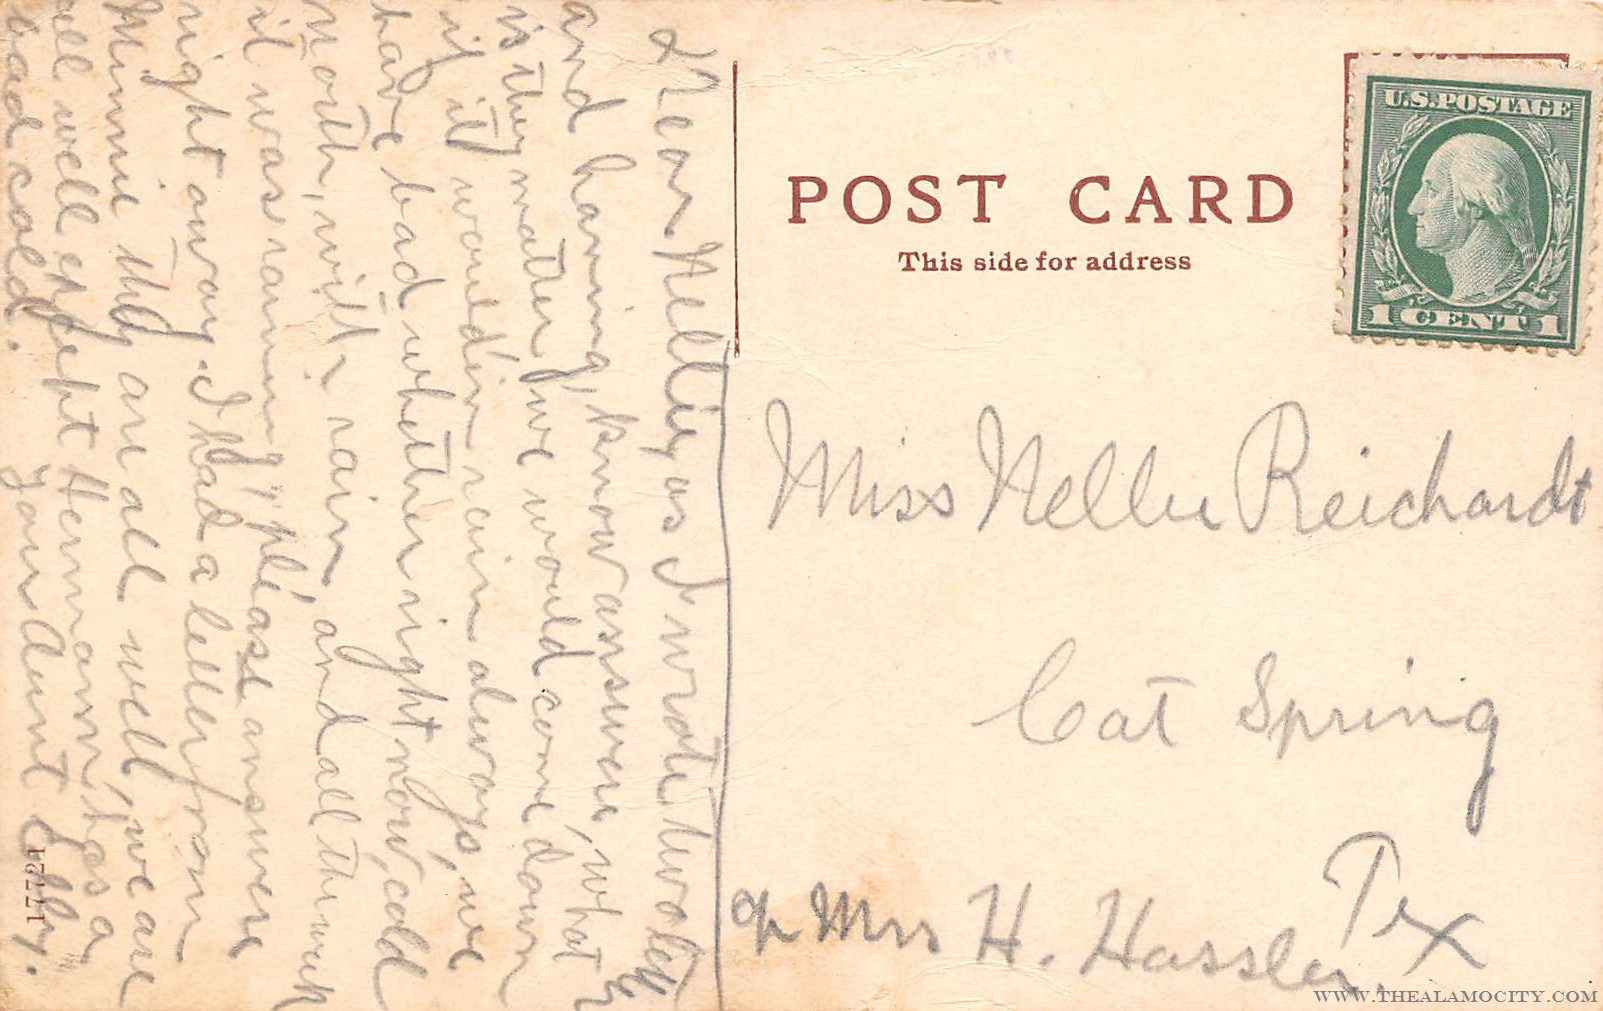 Dear Nellie, as I wrote two letters
and haming, know assuere, what
is they matter, we would come down
if it would'in rain always, we
have bad whether right now, cold
North, with rain, and all the week
it was raining, please ansuere
right away. I had a letter from
Minnie they are all well, we are
all well except Hermann, has a
bad cold.
your Aunt Elly.
17721
POST CARD
This side for address
U.S. POSTAGE
1 CENT 1
Miss Nellie Reichardt
Cat Spring
Tex
% Mrs H. Hassler.
WWW.THEALAMOCITY.COM